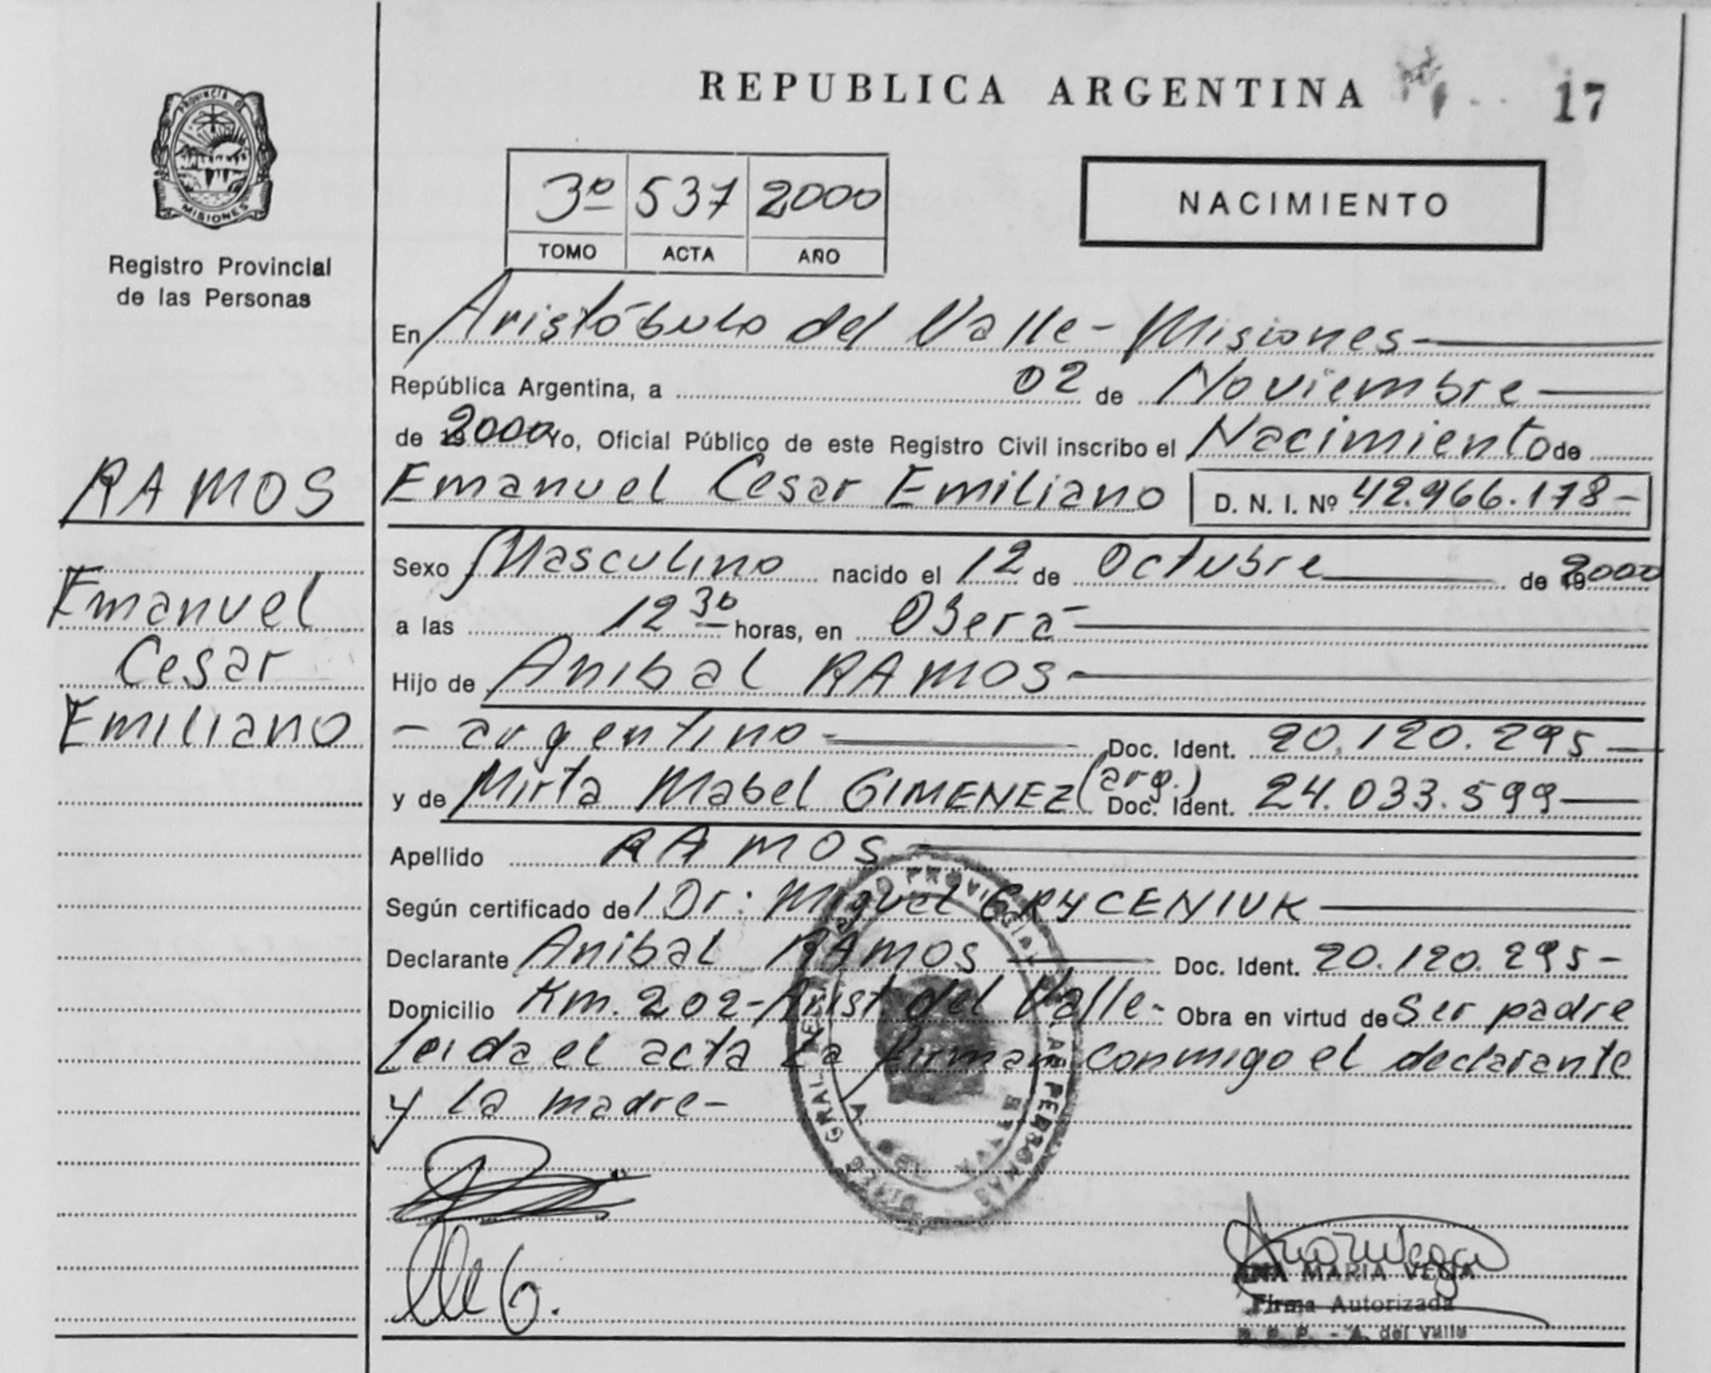 REPUBLICA ARGENTINA
17
PROVINCIA DE
MISIONES
Registro Provincial
de las Personas
3º 537 2000
TOMO ACTA AÑO
NACIMIENTO
En Aristóbulo del Valle - Misiones
República Argentina, a 02 de Noviembre
de 19 2000 Yo, Oficial Público de este Registro Civil inscribo el Nacimiento de
RAMOS
Emanuel Cesar Emiliano D. N. I. Nº 42.966.178-
Sexo Masculino nacido el 12 de Octubre de 19 2000
Emanuel
a las 12 30 horas, en Oberá-
Cesar
Hijo de Anibal RAMOS-
Emiliano
- argentino- Doc. Ident. 20.120.295
y de Mirta Mabel GIMENEZ (arg.) Doc. Ident. 24.033.599
Apellido RAMOS
Según certificado del Dr: Miguel GRYCENIUK
Declarante Anibal RAMOS Doc. Ident. 20.120.295-
Domicilio Km. 202-Arist. del Valle- Obra en virtud de Ser padre
Leida el acta la firman conmigo el declarante
y la madre-
ANA MARIA VEGA
Firma Autorizada
R. P. P. - A. del Valle